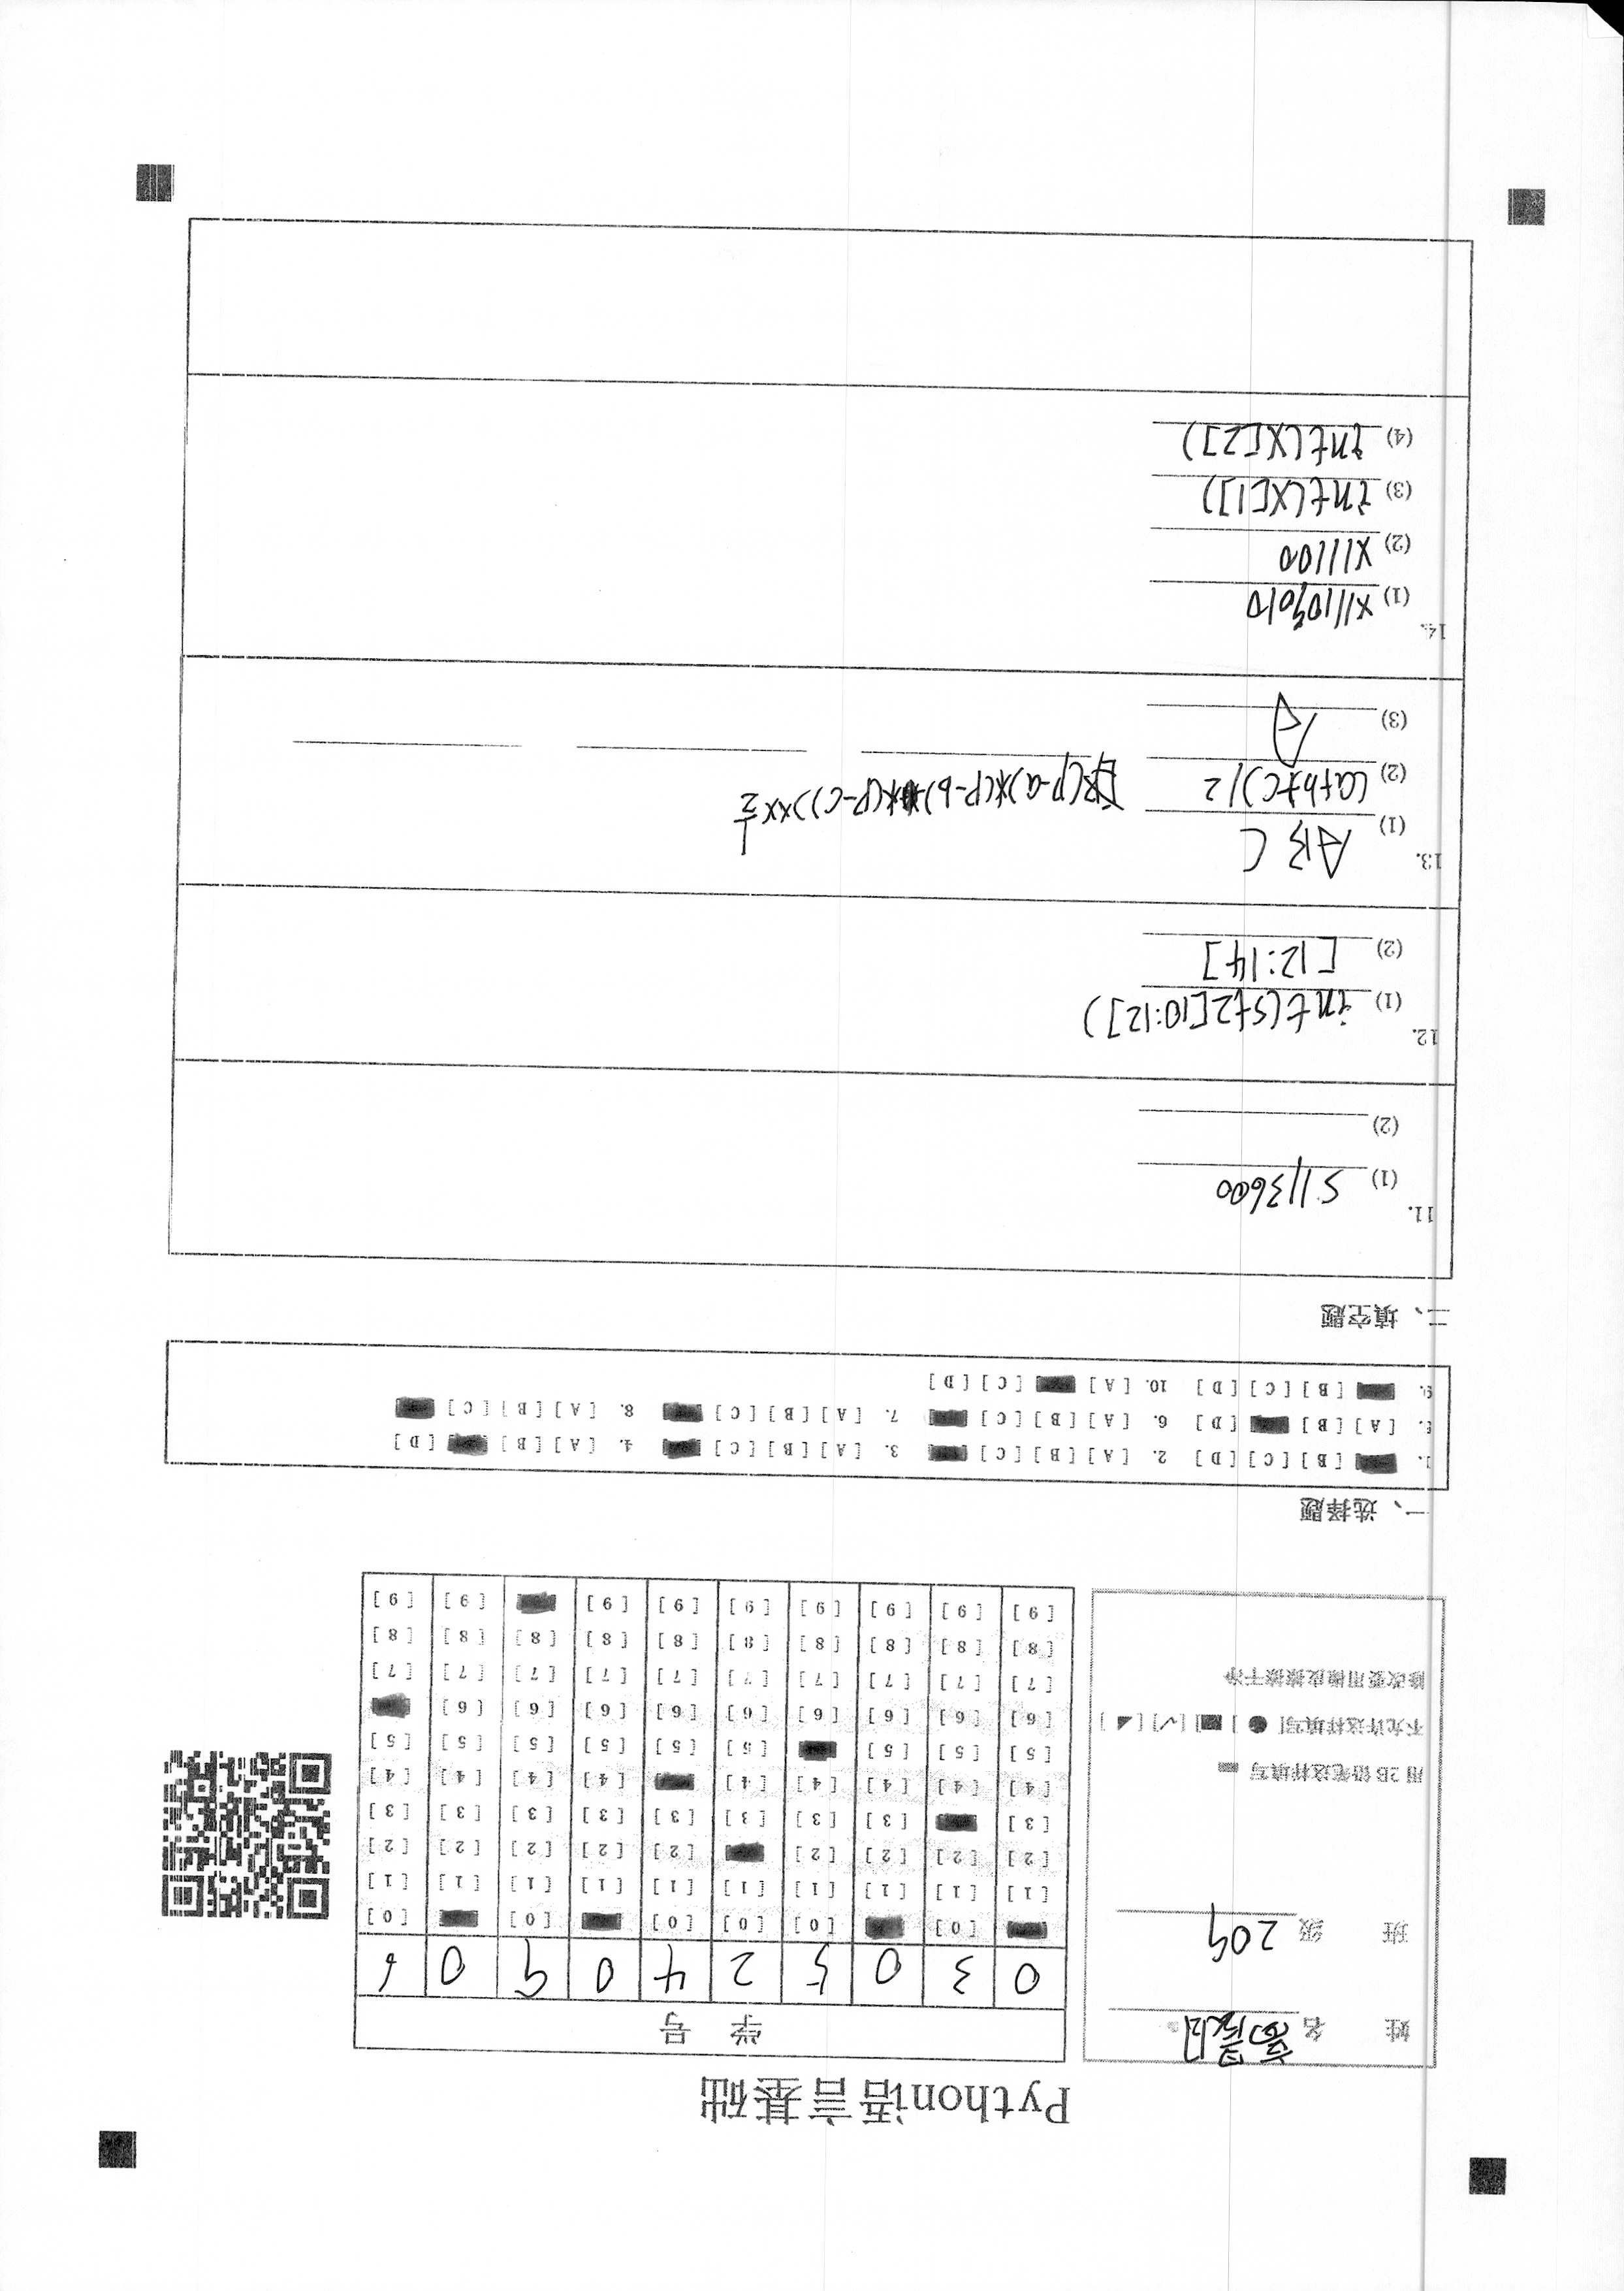 Python语言基础
姓 名
班 级 209
用 2B 铅笔这样填写
不允许这样填写[●] [■] [√] [◢]
修改要用橡皮擦擦干净
学 号
0 3 0 5 2 4 0 9 0 6
[0] [0] [0] [0] [0] [0]
[1] [1] [1] [1] [1] [1] [1] [1] [1] [1]
[2] [2] [2] [2] [2] [2] [2] [2] [2]
[3] [3] [3] [3] [3] [3] [3] [3] [3]
[4] [4] [4] [4] [4] [4] [4] [4] [4]
[5] [5] [5] [5] [5] [5] [5] [5] [5]
[6] [6] [6] [6] [6] [6] [6] [6] [6]
[7] [7] [7] [7] [7] [7] [7] [7] [7] [7]
[8] [8] [8] [8] [8] [8] [8] [8] [8] [8]
[9] [9] [9] [9] [9] [9] [9] [9] [9]
一、选择题
1. [B] [C] [D] 2. [A] [B] [C] 3. [A] [B] [C] 4. [A] [B] [D]
5. [A] [B] [D] 6. [A] [B] [C] 7. [A] [B] [C] 8. [A] [B] [C]
9. [B] [C] [D] 10. [A] [C] [D]
二、填空题
11.
(1) s//3600
(2)
12.
(1) int(st2[10:12])
(2) [12:14]
13.
(1) ABC
(2) (a+b+c)/2 (p-a)*(p-b)*(p-c))**1/2
(3) A
14.
(1) x//10%10
(2) x//100
(3) int(x[1])
(4) int(x[2])